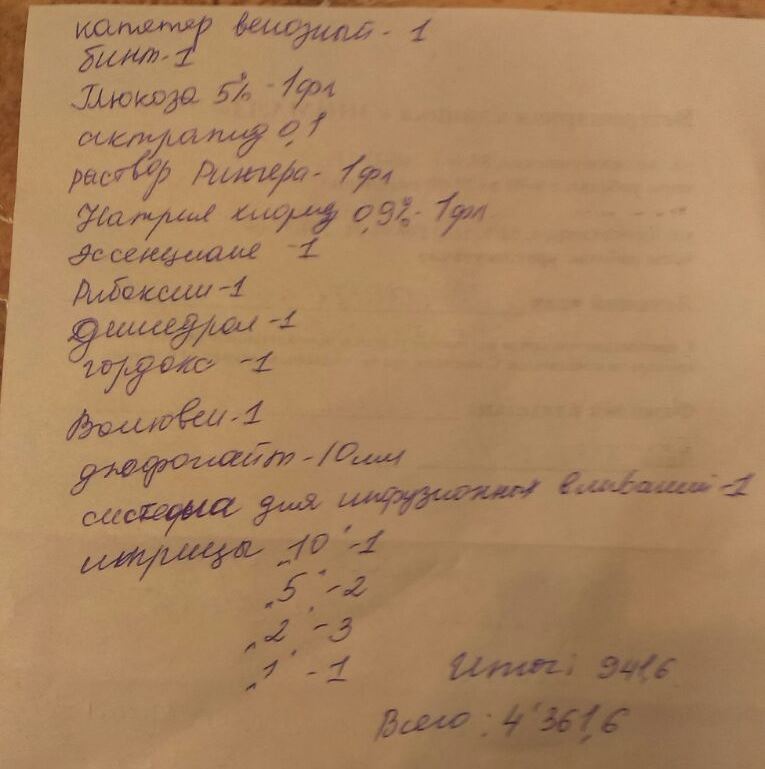 катетер венозный - 1
бинт - 1
Глюкоза 5% - 1фл
актрапид 0,1
раствор Рингера - 1фл
Натрия хлорид 0,9% - 1фл
Эссенциале - 1
Рибоксин - 1
Димедрол - 1
гордокс - 1
Волювен - 1
дюфолайт - 10мл
система для инфузионных вливаний - 1
шприцы "10" - 1
"5" - 2
"2" - 3
"1" - 1
Итог: 941,6
Всего: 4'361,6